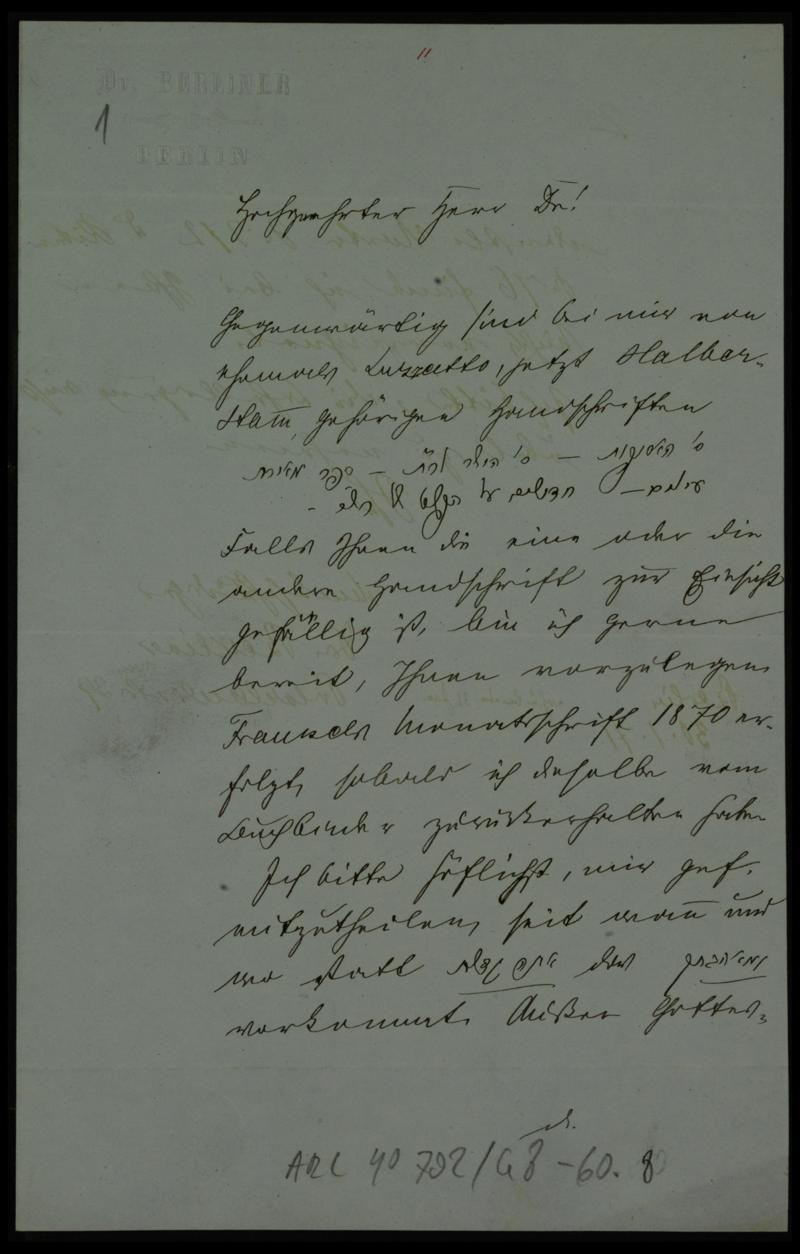 11
Dr. BERLINER
1
BERLIN
Hochgeehrter Herr Dr!
Gegenwärtig sind bei mir von
ehemals Luzzatto, jetzt Halber-
stam̄, gehörigen Handschriften
ס' האסופות — ס' — ספר מאירת
עינים — חדושים על
Falls Ihnen die eine oder die
andere Handschrift zur Einsicht
gefällig ist, bin ich gerne
bereit, Ihnen vorzulegen.
Frankels Monatsschrift 1870 er-
folgt, sobald ich dieselbe vom
Buchbinder zurückerhalten habe.
Ich bitte höflichst, mir gef.
mitzutheilen, seit wan̄ und
wo statt das
vorkommt. Außer Gottes-
d.
ARC 4° 792/G8-60. 8